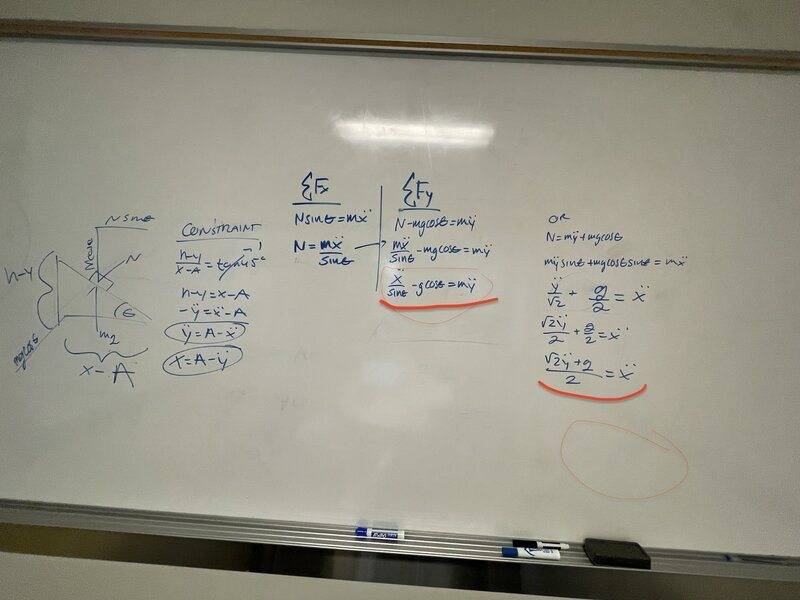 N sinθ
N
h-y
θ
mgcosθ
x - A
CONSTRAINT
h-y/x-A = tan45°
h-y = x-A
-ÿ = ẍ-A
ÿ = A-ẍ
ẍ = A-ÿ
ΣFx
Nsinθ = mẍ
N = mẍ/sinθ
ΣFy
N-mgcosθ = mÿ
mẍ/sinθ - mgcosθ = mÿ
ẍ/sinθ - gcosθ = mÿ
OR
N = mÿ + mgcosθ
mÿ sinθ + mgcosθ sinθ = mẍ
ÿ/√2 + g/2 = ẍ
√2ÿ/2 + g/2 = ẍ
√2ÿ + g/2 = ẍ